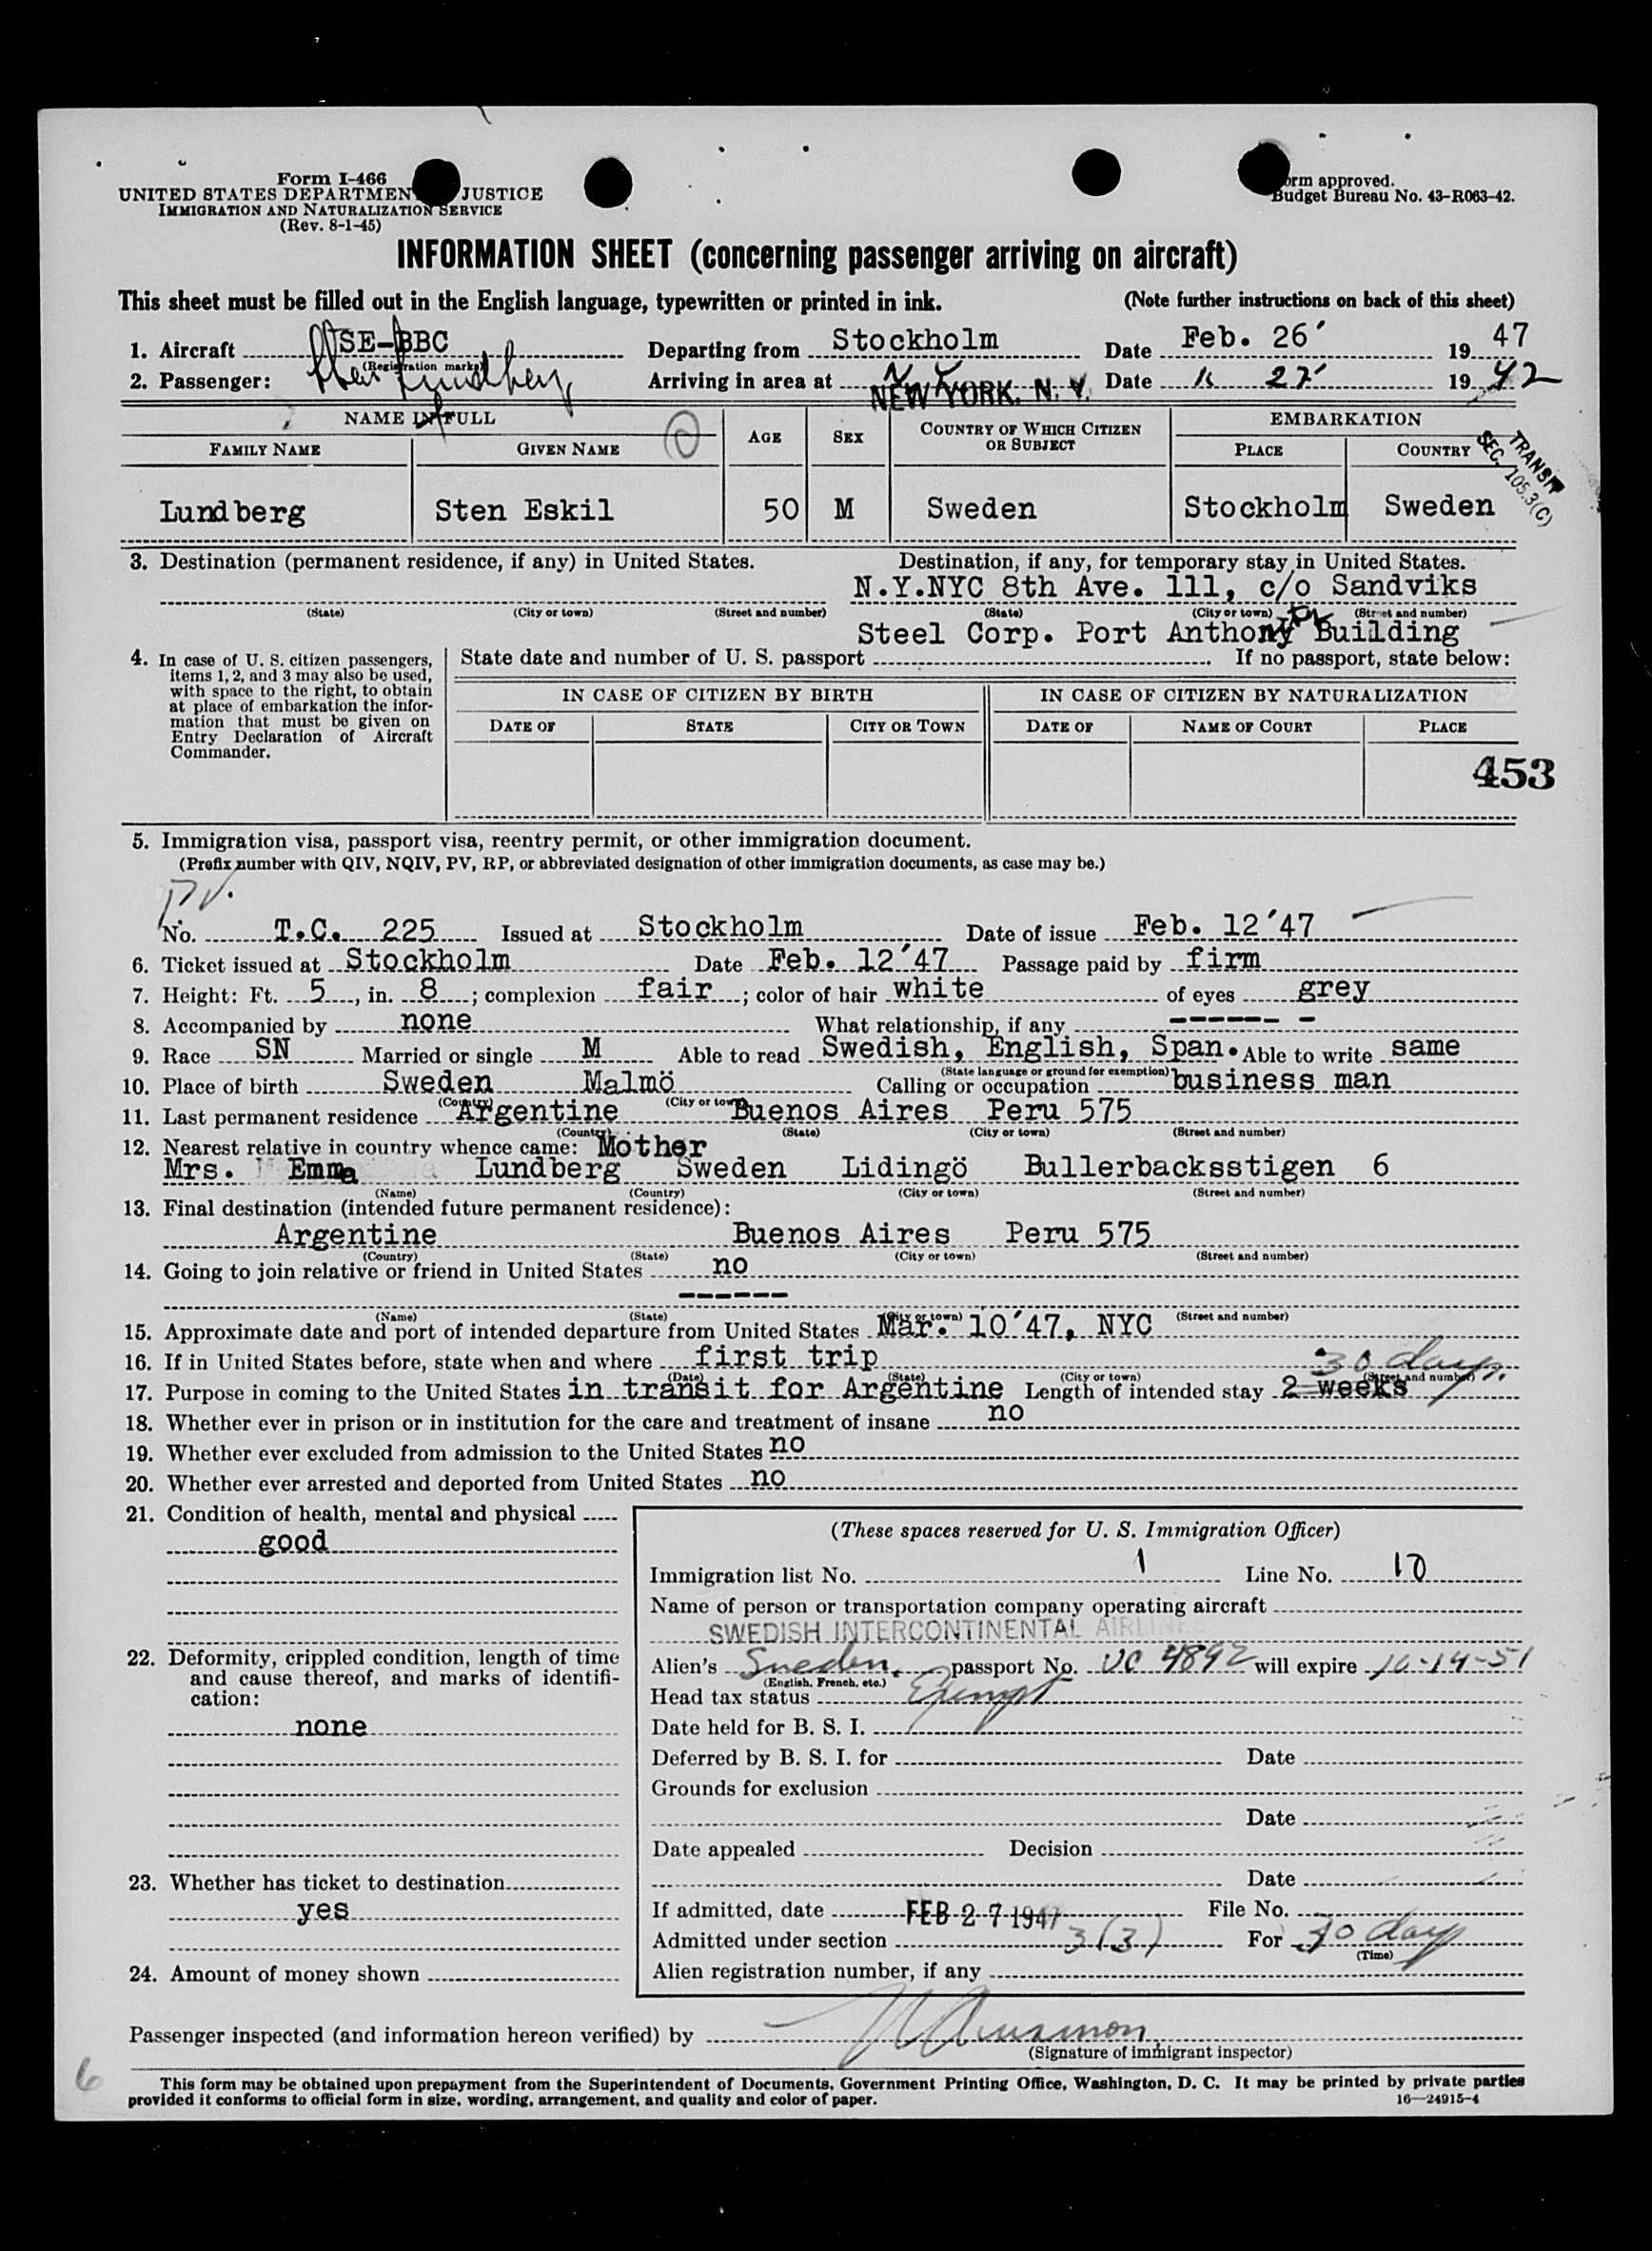 Form I-466
UNITED STATES DEPARTMEN JUSTICE
IMMIGRATION AND NATURALIZATION SERVICE
(Rev. 8-1-45)
orm approved.
Budget Bureau No. 43-R063-42.
INFORMATION SHEET (concerning passenger arriving on aircraft)
This sheet must be filled out in the English language, typewritten or printed in ink. (Note further instructions on back of this sheet)
1. Aircraft SE-BBC Departing from Stockholm Date Feb. 26' 1947
(Registration marks)
2. Passenger: Sten Lundberg Arriving in area at N Y NEW YORK, N. Y. Date 27' 1942
NAME IN FULL AGE SEX COUNTRY OF WHICH CITIZEN OR SUBJECT EMBARKATION
FAMILY NAME GIVEN NAME PLACE COUNTRY
TRANSIT
SEC. 105.3(C)
Lundberg Sten Eskil 50 M Sweden Stockholm Sweden
3. Destination (permanent residence, if any) in United States. Destination, if any, for temporary stay in United States.
N.Y.NYC 8th Ave. 111, c/o Sandviks
(State) (City or town) (Street and number) (State) (City or town) (Street and number)
Steel Corp. Port Anthony Building
4. In case of U. S. citizen passengers, items 1, 2, and 3 may also be used, with space to the right, to obtain at place of embarkation the information that must be given on Entry Declaration of Aircraft Commander.
State date and number of U. S. passport . If no passport, state below:
IN CASE OF CITIZEN BY BIRTH IN CASE OF CITIZEN BY NATURALIZATION
DATE OF STATE CITY OR TOWN DATE OF NAME OF COURT PLACE
453
5. Immigration visa, passport visa, reentry permit, or other immigration document.
(Prefix number with QIV, NQIV, PV, RP, or abbreviated designation of other immigration documents, as case may be.)
PV.
No. T.C. 225 Issued at Stockholm Date of issue Feb. 12'47
6. Ticket issued at Stockholm Date Feb. 12'47 Passage paid by firm
7. Height: Ft. 5, in. 8; complexion fair; color of hair white of eyes grey
8. Accompanied by none What relationship, if any ------ -
9. Race SN Married or single M Able to read Swedish, English, Span. Able to write same
(State language or ground for exemption)
10. Place of birth Sweden Malmö Calling or occupation business man
(Country) (City or town)
11. Last permanent residence Argentine Buenos Aires Peru 575
(Country) (State) (City or town) (Street and number)
12. Nearest relative in country whence came: Mother
Mrs. Emma Lundberg Sweden Lidingö Bullerbacksstigen 6
(Name) (Country) (City or town) (Street and number)
13. Final destination (intended future permanent residence):
Argentine Buenos Aires Peru 575
(Country) (State) (City or town) (Street and number)
14. Going to join relative or friend in United States no
------
(Name) (State) (City or town) (Street and number)
15. Approximate date and port of intended departure from United States Mar. 10'47, NYC
16. If in United States before, state when and where first trip
(Date) (State) (City or town) (Street and number)
30 days.
17. Purpose in coming to the United States in transit for Argentine Length of intended stay 2 weeks
18. Whether ever in prison or in institution for the care and treatment of insane no
19. Whether ever excluded from admission to the United States no
20. Whether ever arrested and deported from United States no
21. Condition of health, mental and physical
good
22. Deformity, crippled condition, length of time and cause thereof, and marks of identification:
none
23. Whether has ticket to destination
yes
24. Amount of money shown
(These spaces reserved for U. S. Immigration Officer)
Immigration list No. 1 Line No. 10
Name of person or transportation company operating aircraft
SWEDISH INTERCONTINENTAL AIRLINE
Alien's Sweden. passport No. UC 4892 will expire 10-14-51
(English, French, etc.)
Head tax status Exempt
Date held for B. S. I.
Deferred by B. S. I. for Date
Grounds for exclusion
Date
Date appealed Decision
Date
If admitted, date FEB 27 1947 File No.
Admitted under section 3(3) For 30 day
(Time)
Alien registration number, if any
Passenger inspected (and information hereon verified) by
(Signature of immigrant inspector)
6
This form may be obtained upon prepayment from the Superintendent of Documents, Government Printing Office, Washington, D. C. It may be printed by private parties
provided it conforms to official form in size, wording, arrangement, and quality and color of paper. 16—24915-4